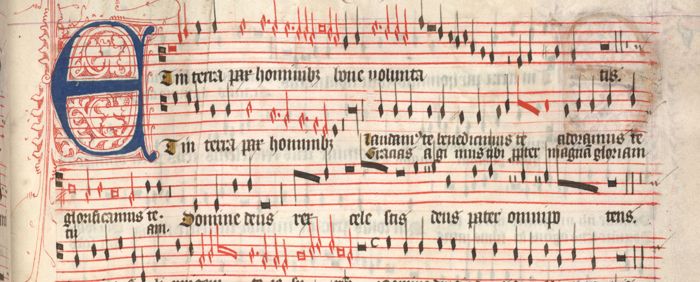 E
Et in terra pax hominibꝫ bone volunta tis.
Et in terra pax hominibꝫ laudamꝰ te benedicimus te adoramus te
Gracias agi mus tibi ꝓpter magnā gloriam
glorificamus te. Domine deus rex cele stis deus pater omnipo tens.
tu am.